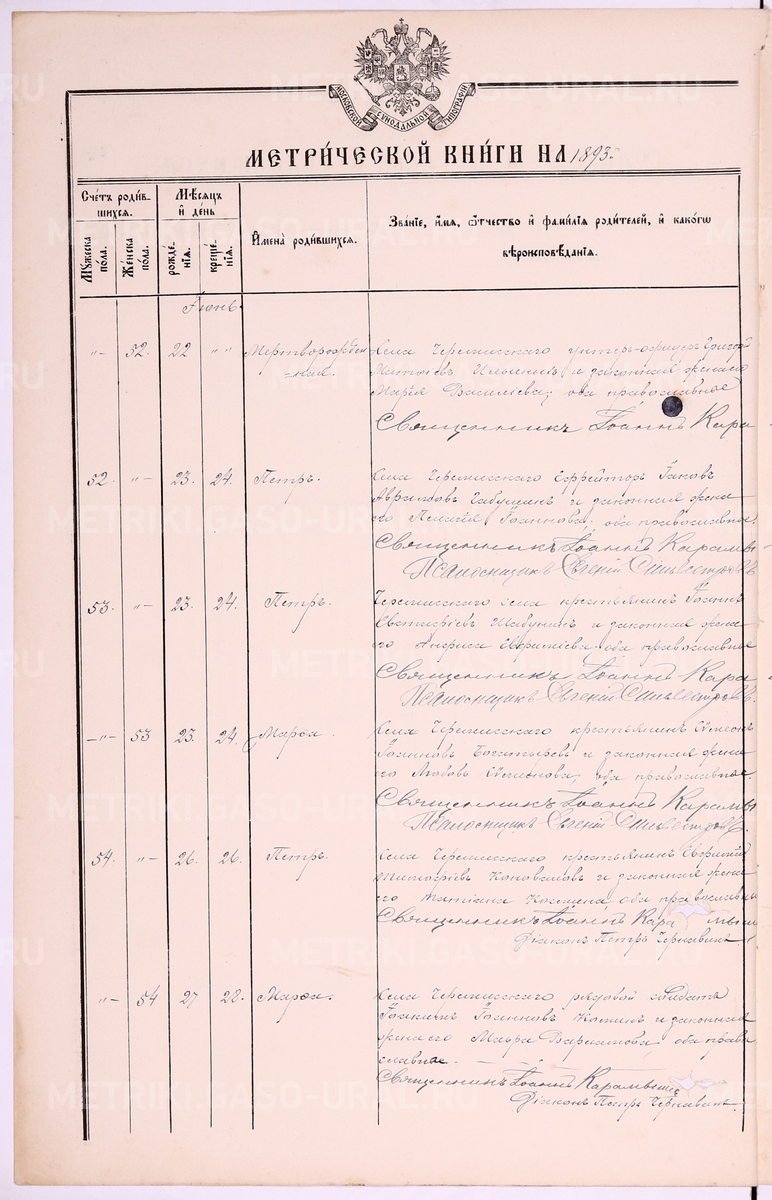 МОСКОВСКОЙ СѴНОДАЛЬНОЙ ТИПОГРАФІИ
МЕТРИЧЕСКОЙ КНИГИ НА 1893
Счетъ родившихся.
Мужеска пола.
Женска пола.
Мѣсяцъ и день
рожденія.
крещенія.
Имена родившихся.
Званіе, имя, отчество и фамилія родителей, и какогѡ
вѣроисповѣданія.
Іюнь.
-"- 52. 22 " " Мертворожден
=ная.
Села Черемисскаго унтеръ-офицеръ Григорій
Матѳіевъ Ильиныхъ и законная жена его
Марія Василіева; оба православные
Священникъ Іоаннъ Кара
52. "- 23. 24. Петръ.
Села Черемисскаго Ефрейторъ Іаковъ
Авраамовъ и законная жена
его Пелагія Іоаннова; оба православные.
Священникъ Іоаннъ Карамы
Псаломщикъ Евгеній Сильвестровъ.
53. "- 23. 24. Петръ.
Черемисскаго села крестьянинъ Іоаннъ
Евстафіевъ Шабунинъ и законная жена
его Анфиса Ефремова оба православные
Священникъ Іоаннъ Кара
Псаломщикъ Евгеній Сильвестровъ.
-"- 53 23. 24. Марѳа.
Села Черемисскаго крестьянинъ Симеонъ
Іоанновъ Богатыревъ и законная жена
его Любовь Симеонова; оба православные.
Священникъ Іоаннъ Карамы
Псаломщикъ Евгеній Сильвестровъ.
54. "- 26. 26. Петръ.
Села Черемисскаго крестьянинъ Евфимій
Тимоѳіевъ Коноваловъ и законная жена
его Татіана Космина оба православны
Священникъ Іоаннъ Кара мыш
Діаконъ Петръ Чернавинъ
"- 54 27 28. Марѳа.
Села Черемисскаго рядовой солдатъ
Іоакимъ Іоанновъ и законная
жена его Мавра Варлаамова оба право
славные.
Священникъ Іоаннъ Карамышевъ
Діаконъ Петръ Чернавинъ.
METRIKI.GASO-URAL.RU